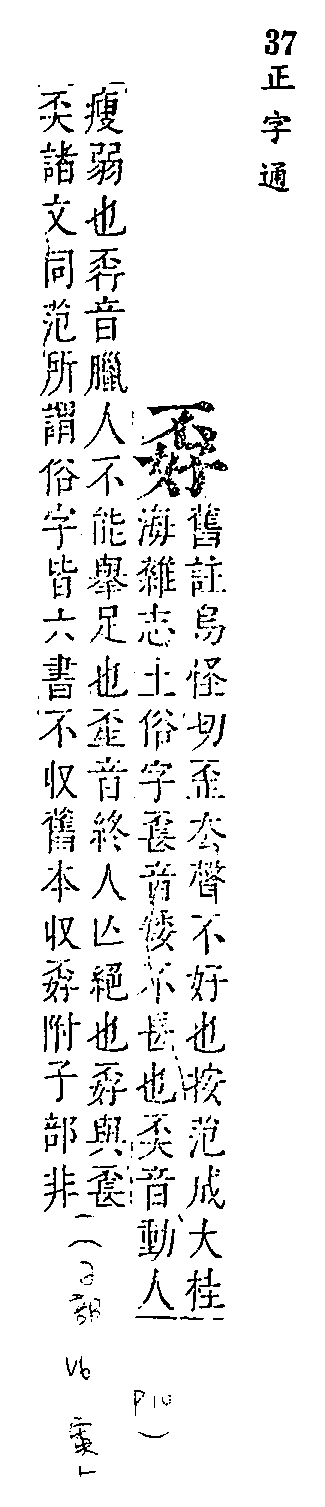 37正字通
孬
舊註烏怪切歪去聲不好也按范成大桂
海雜志土俗字⿱不長音矮不長也奀音動人
瘦弱也⿱不行音臘人不能舉足也歪音終人亾絕也孬與⿱不長
奀諸文同范所謂俗字皆六書不収舊本収孬附子部非
(子部
P10)